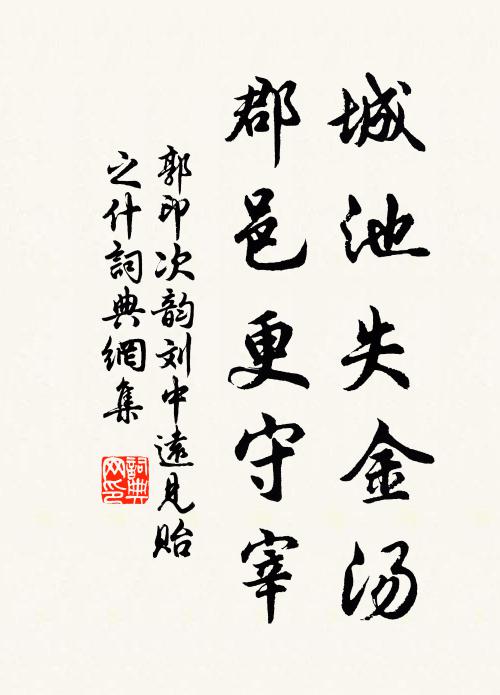 城池失金汤
郡邑更守宰
郭印次韵刘中遠見贻
之什詞典網集
詞典
网印